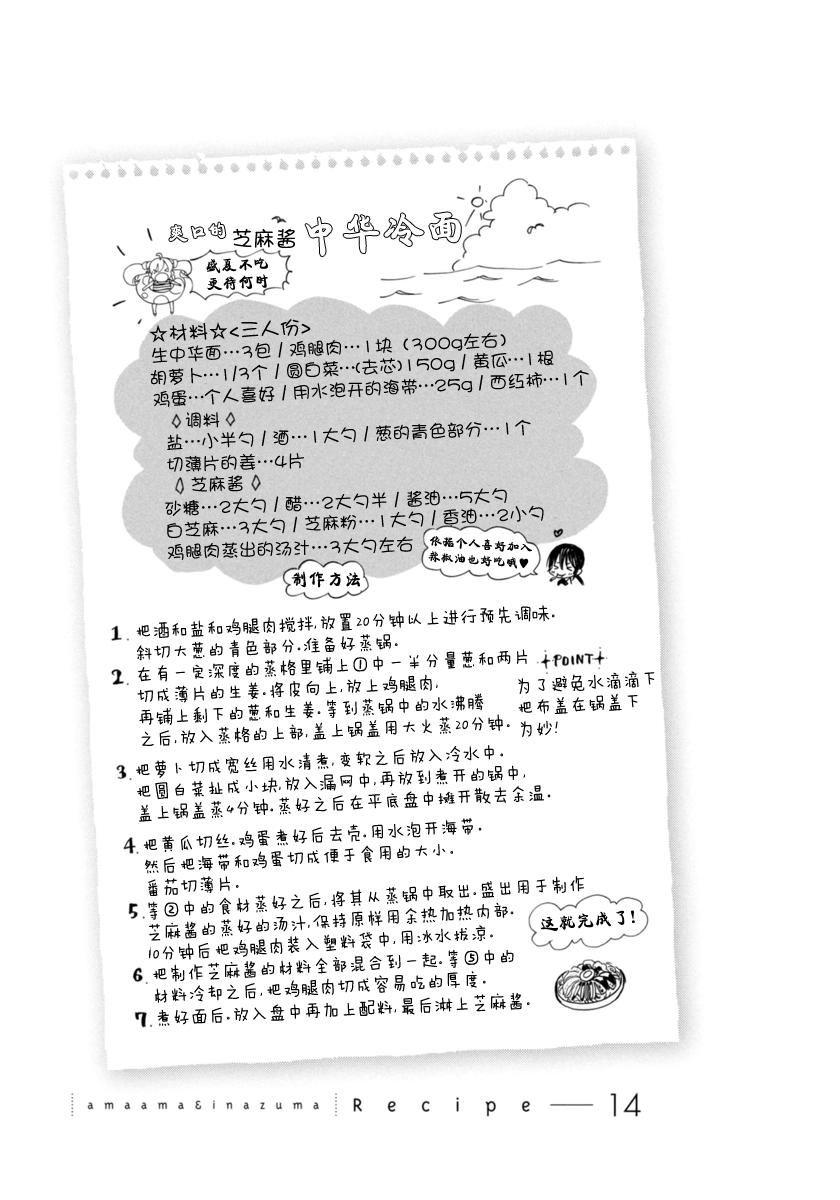 爽口的 芝麻酱 中华冷面
盛夏不吃
更待何时
☆材料☆<三人份>
生中华面…3包 / 鸡腿肉…1块（300g左右）
胡萝卜…1/3个 / 圆白菜…(去芯)150g / 黄瓜…1根
鸡蛋…个人喜好 / 用水泡开的海带…25g / 西红柿…1个
◊调料◊
盐…小半勺 / 酒…1大勺 / 葱的青色部分…1个
切薄片的姜…4片
◊芝麻酱◊
砂糖…2大勺 / 醋…2大勺半 / 酱油…5大勺
白芝麻…3大勺 / 芝麻粉…1大勺 / 香油…2小勺
鸡腿肉蒸出的汤汁…3大勺左右
依据个人喜好加入
辣椒油也好吃哦♥
制作方法
1. 把酒和盐和鸡腿肉搅拌,放置20分钟以上进行预先调味.
斜切大葱的青色部分.准备好蒸锅.
2. 在有一定深度的蒸格里铺上①中一半分量葱和两片
切成薄片的生姜.将皮向上,放上鸡腿肉,
再铺上剩下的葱和生姜.等到蒸锅中的水沸腾
之后,放入蒸格的上部,盖上锅盖用大火蒸20分钟.
POINT
为了避免水滴滴下
把布盖在锅盖下
为妙!
3. 把萝卜切成宽丝用水清煮,变软之后放入冷水中.
把圆白菜扯成小块,放入漏网中,再放到煮开的锅中,
盖上锅盖蒸4分钟.蒸好之后在平底盘中摊开散去余温.
4. 把黄瓜切丝.鸡蛋煮好后去壳.用水泡开海带.
然后把海带和鸡蛋切成便于食用的大小.
番茄切薄片.
5. 等②中的食材蒸好之后,将其从蒸锅中取出.盛出用于制作
芝麻酱的蒸好的汤汁,保持原样用余热加热内部.
10分钟后把鸡腿肉装入塑料袋中,用冰水拔凉.
这就完成了!
6. 把制作芝麻酱的材料全部混合到一起.等⑤中的
材料冷却之后,把鸡腿肉切成容易吃的厚度.
7. 煮好面后.放入盘中再加上配料,最后淋上芝麻酱.
amaama&inazuma Recipe — 14